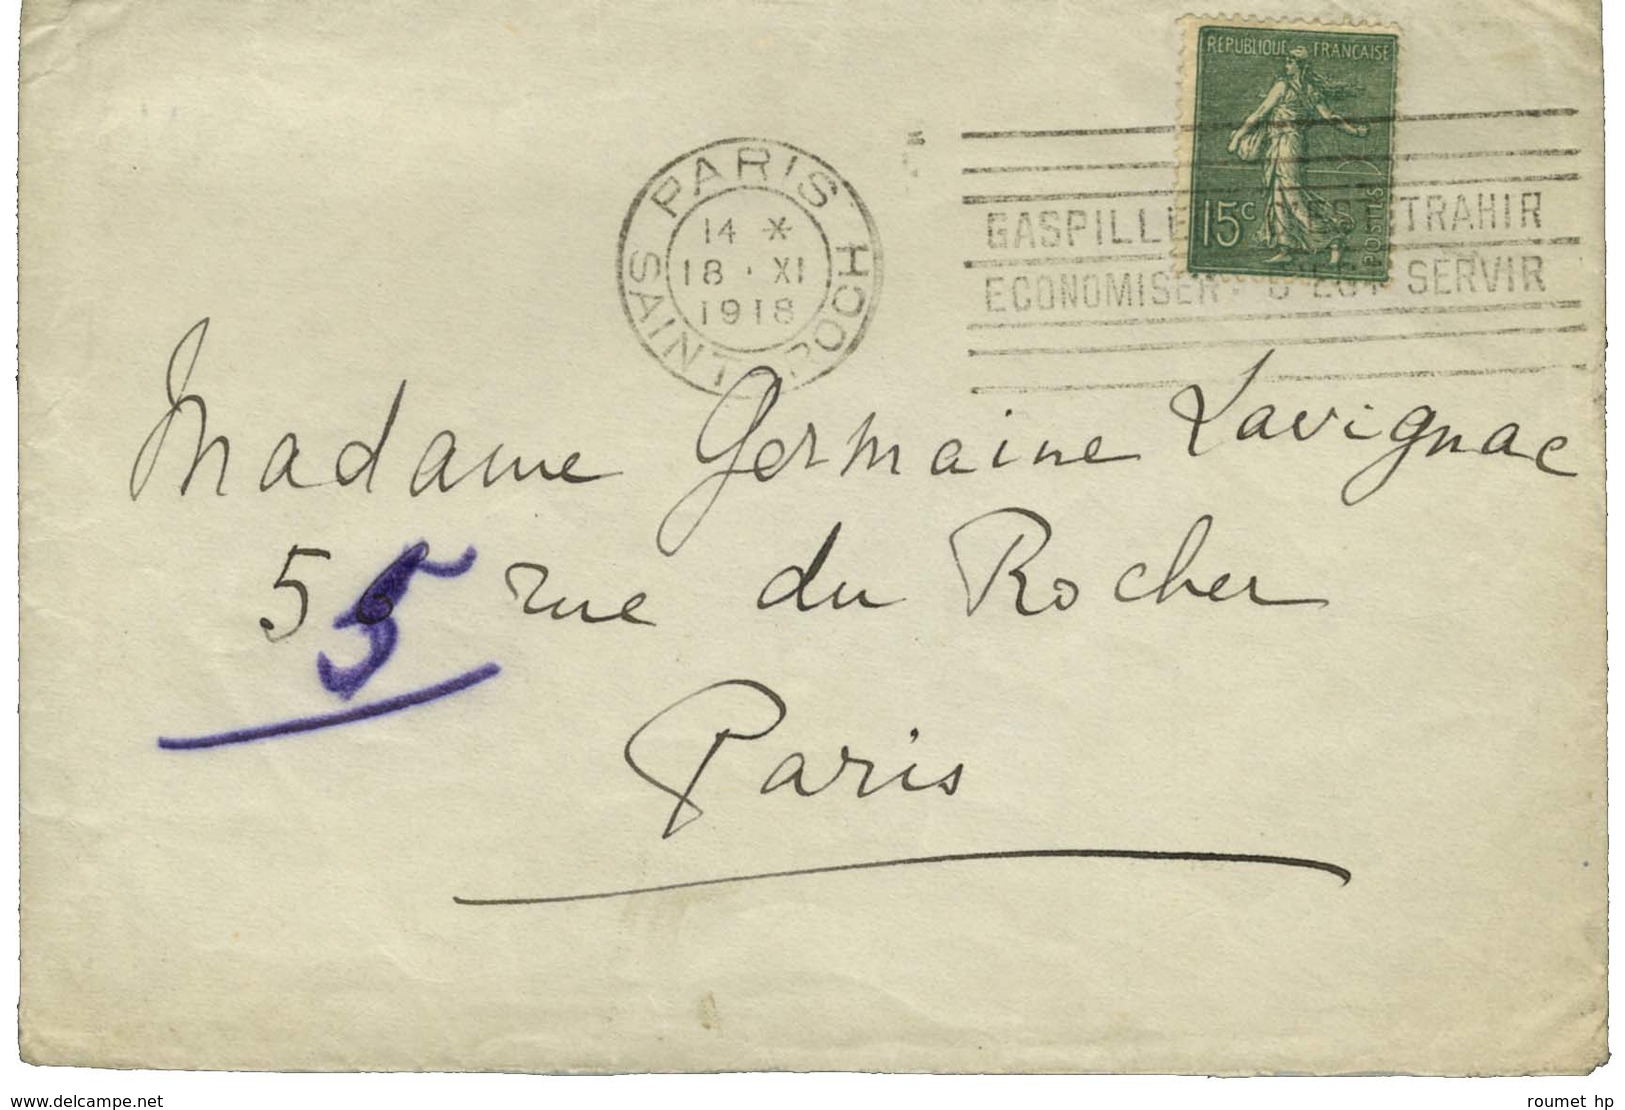 RÉPUBLIQUE FRANÇAISE
15c POSTES
PARIS
14 *
18 · XI
1918
SAINT ROCH
GASPILLER C'EST TRAHIR
ECONOMISER: C'EST SERVIR
Madame Germaine Lavignac
55 rue du Rocher
Paris
www.delcampe.net
roumet hp